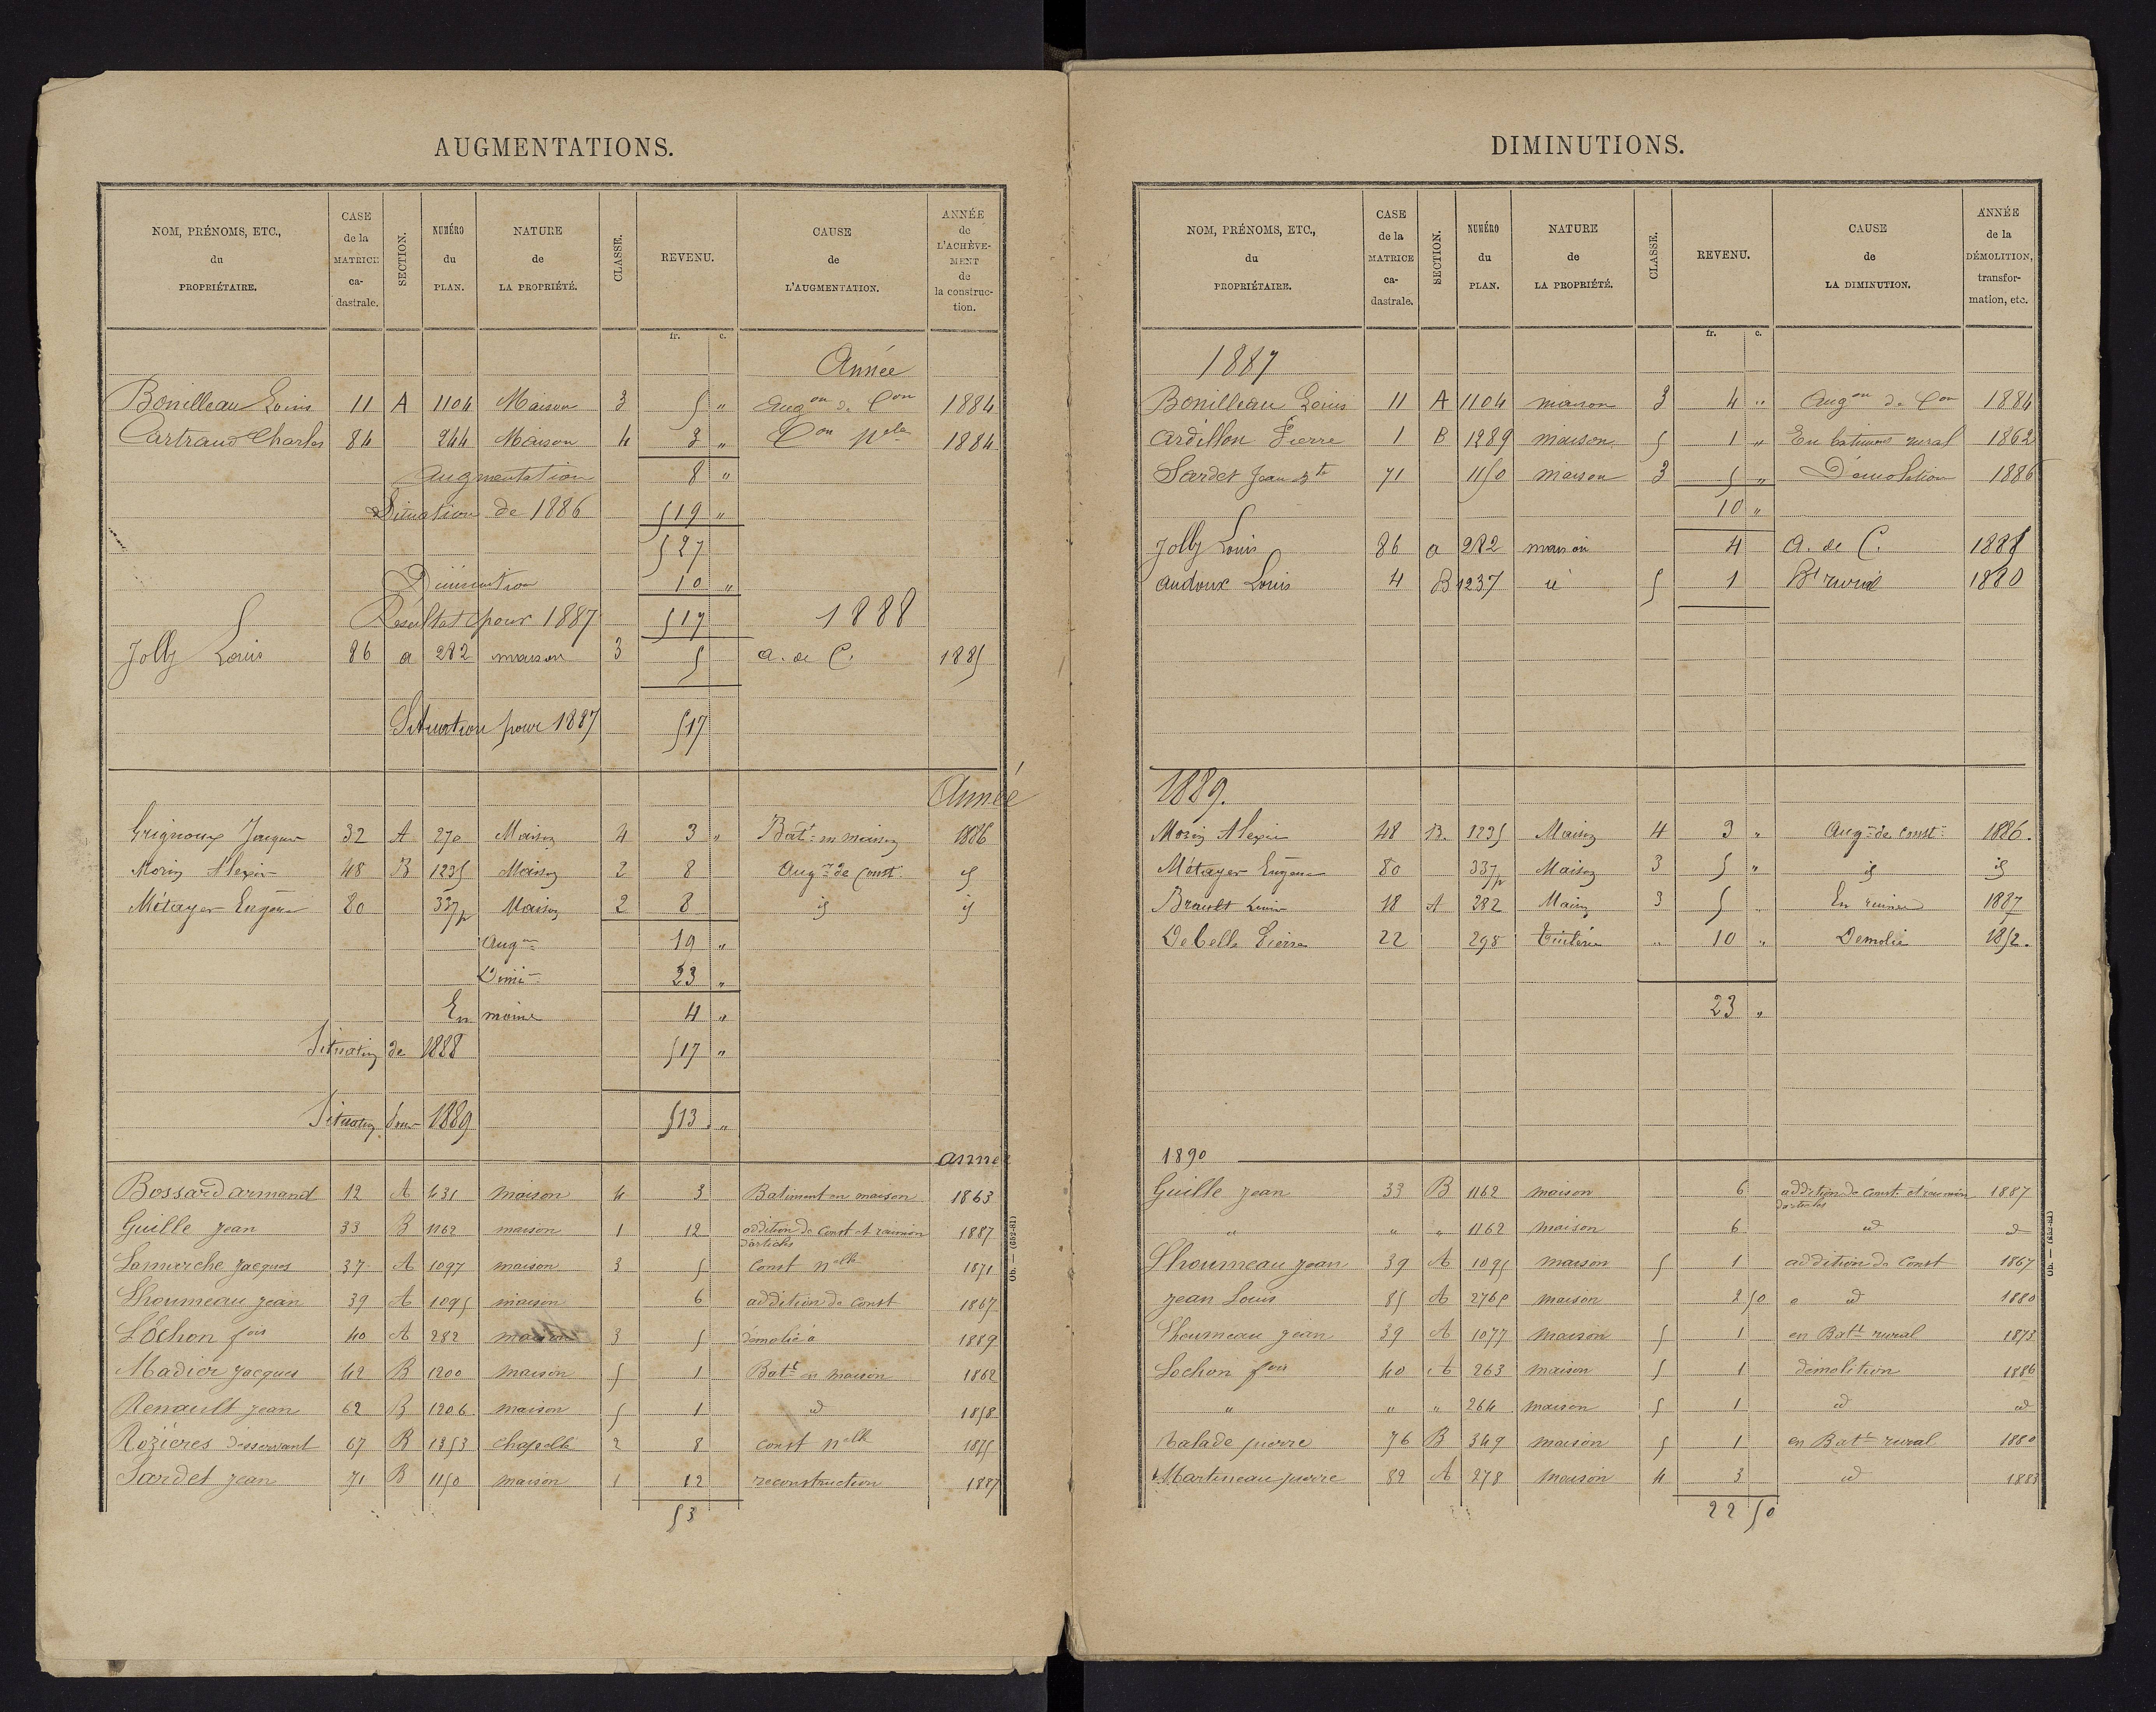 AUGMENTATIONS.
NOM, PRÉNOMS, ETC., du PROPRIÉTAIRE. CASE de la MATRICE ca- dastrale. SECTION. NUMÉRO du PLAN. NATURE de LA PROPRIÉTÉ. CLASSE. REVENU. CAUSE de L'AUGMENTATION. ANNÉE de L'ACHÈVE- MENT de la construc- tion.
fr. c.
Année
Bonilleau Louis 11 A 1104 Maison 3 5 " Aug.on de Con 1884
Cartraud Charles 84 244 Maison 4 3 " Con nelle 1884
Augmentation 8 "
Situation de 1886 519 "
527
Diminution 10 "
Résultat pour 1887 517 1888
Jolly Louis 86 a 282 maison 3 5 a. de C. 1885
Situation pour 1887 517
Année
Grignoux Jacques 32 A 270 Maison 4 3 " Bat.t en maison 1886
Morin Alexis 48 B 1235 Maison 2 8 Aug.on de Const. id
Métayer Eugène 80 337p Maison 2 8 id id
Aug.on 19 "
Dimi.on 23 "
En moins 4 "
Situation de 1888 517 "
Situation pour 1889 513 "
année
Bossard armand 12 A 431 maison 4 3 Batiment en maison 1863
Guille Jean 33 B 1162 maison 1 12 addition de Const et réunion d'articles 1887
Lamerche Jacques 37 A 1097 maison 3 5 Const nelle 1871
Lhoumeau Jean 39 A 1095 maison 6 addition de Const 1867
Lochon fois 40 A 282 maison 3 5 1889
Madier Jacques 42 B 1200 maison 5 1 Batt en maison 1862
Renault Jean 62 B 1206 maison 5 1 id 1858
Rozières desservant 67 B 1353 chapelle 2 8 const nelle 1875
Sardet Jean 71 B 1150 maison 1 12 reconstruction 1887
53
Ob. — (652-81)
DIMINUTIONS.
NOM, PRÉNOMS, ETC., du PROPRIÉTAIRE. CASE de la MATRICE ca- dastrale. SECTION. NUMÉRO du PLAN. NATURE de LA PROPRIÉTÉ. CLASSE. REVENU. CAUSE de LA DIMINUTION. ANNÉE de la DÉMOLITION, transfor- mation, etc.
fr. c.
1887
Bonilleau Louis 11 A 1104 maison 3 4 " Aug.on de Con 1884
Ardillon Pierre 1 B 1289 maison 5 1 " En batiment rural 1862
Sardet Jean Bte 71 1150 maison 3 5 " Démolition 1886
10 "
Jolly Louis 86 a 282 maison 4 a. de C. 1885
Audoux Louis 4 B 1237 id 5 1 Bt rural 1880
1889.
Morin Alexis 48 B. 1235 Maison 4 3 " Aug.on de Const. 1886.
Métayer Eugène 80 337p Maison 3 5 " id id
Brault Louis 18 A 282 Maison 3 5 " En ruines 1887
Debelle Pierre 22 298 tuilerie " 10 " Demolie 1852.
23 "
1890
Guille Jean 33 B 1162 maison 6 addition de Const. et réunion d'articles 1887
" " " 1162 maison 6 id id
Lhoumeau Jean 39 A 1095 maison 5 1 addition de Const 1867
Jean Louis 85 A 276p maison 2 50 " id 1880
Lhoumeau Jean 39 A 1077 maison 5 1 en Batt rural 1873
Lochon fois 40 A 263 maison 5 1 démolition 1886
" " " 264 maison 5 1 id id
Balade pierre 76 B 349 maison 5 1 en Batt rural 1880
Martineau pierre 82 A 278 maison 4 3 id 1883
22 50
Ob. — (652-81)